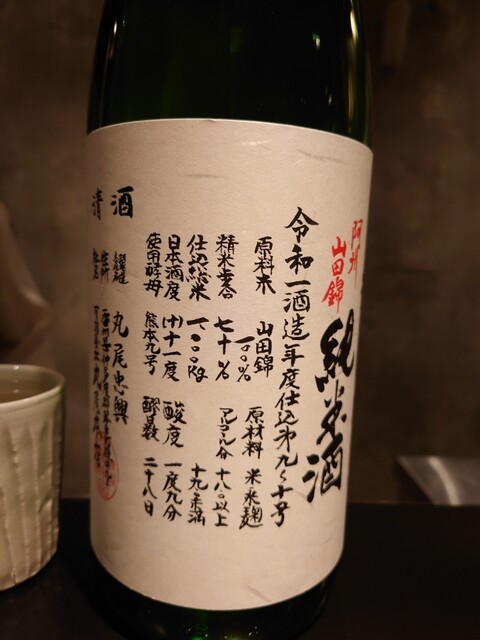 阿州
山田錦
純米酒
令和一酒造年度仕込第九〜十号
原料米 山田錦 100%
原材料 米 米麹
精米歩合 七十%
アルコール分 十八。以上 十九。未満
仕込総米 一〇〇〇kg
日本酒度 (+)十一度
酸度 一度九分
使用酵母 熊本九号
醪日数 二十八日
清酒
丸尾忠興